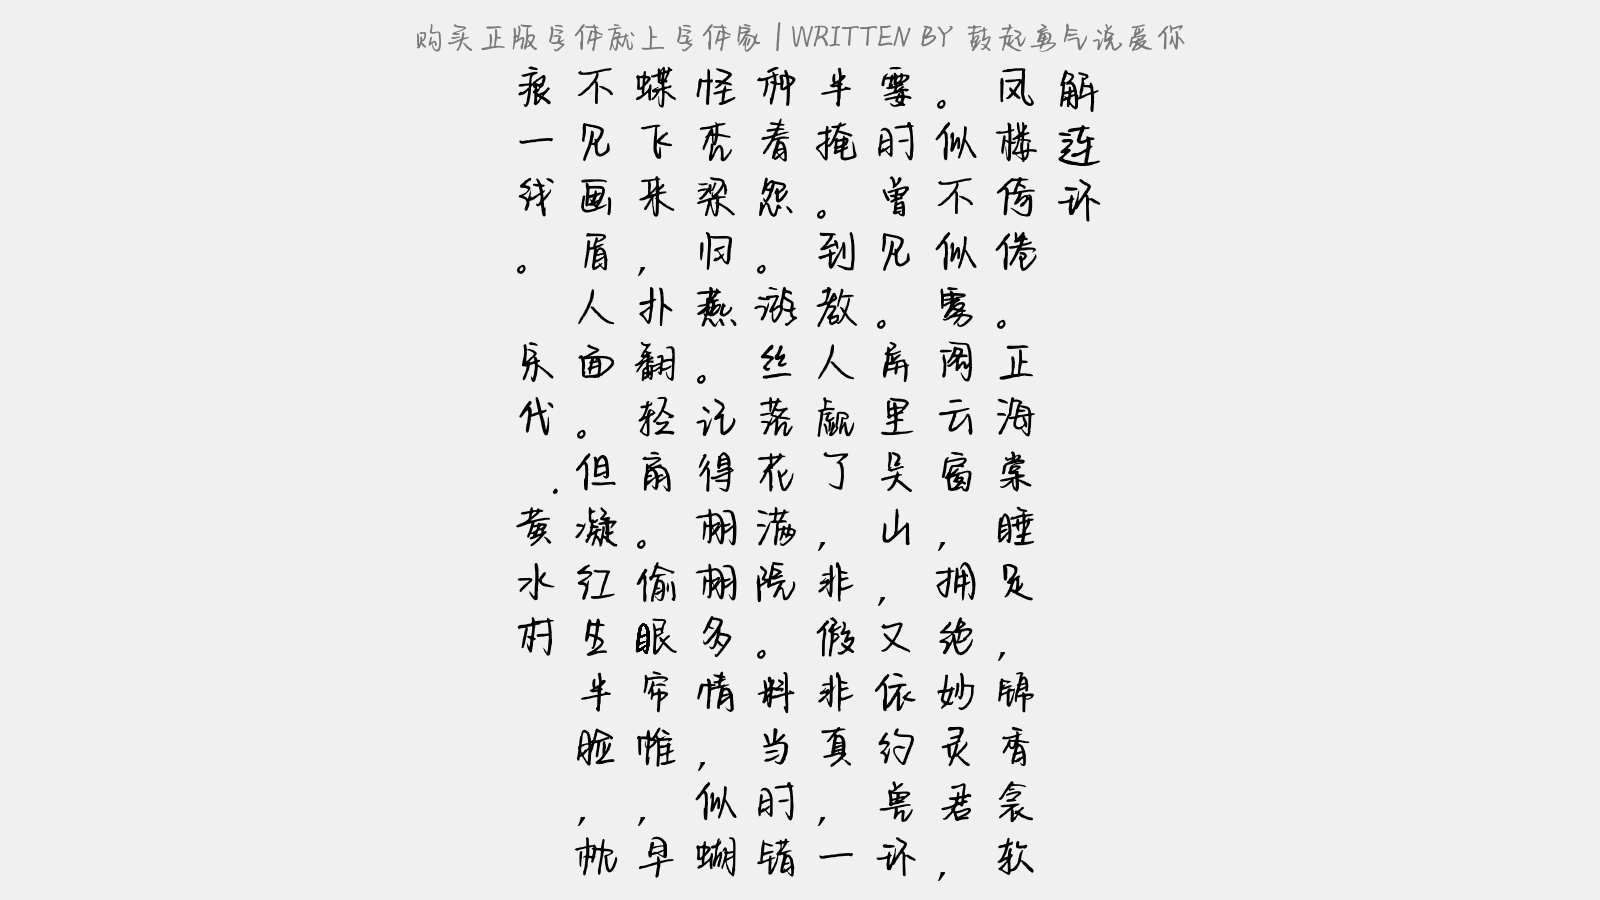 购买正版字体就上字体家 | WRITTEN BY 鼓起勇气说爱你
解连环
凤楼倚倦。正海棠睡足，锦香衾软
。似不似雾阁云窗，拥绝妙灵君，
霎时曾见。屏里吴山，又依约兽环
半掩。到教人觑了，非假非真，一
种看怨。游丝落花满院。料当时错
怪杏梁归燕。记得栩栩多情，似蝴
蝶飞来，扑翻轻扇。偷眼帘帷，早
不见画眉人面。但凝红生半脸，枕
痕一线。
宋代.黄水村